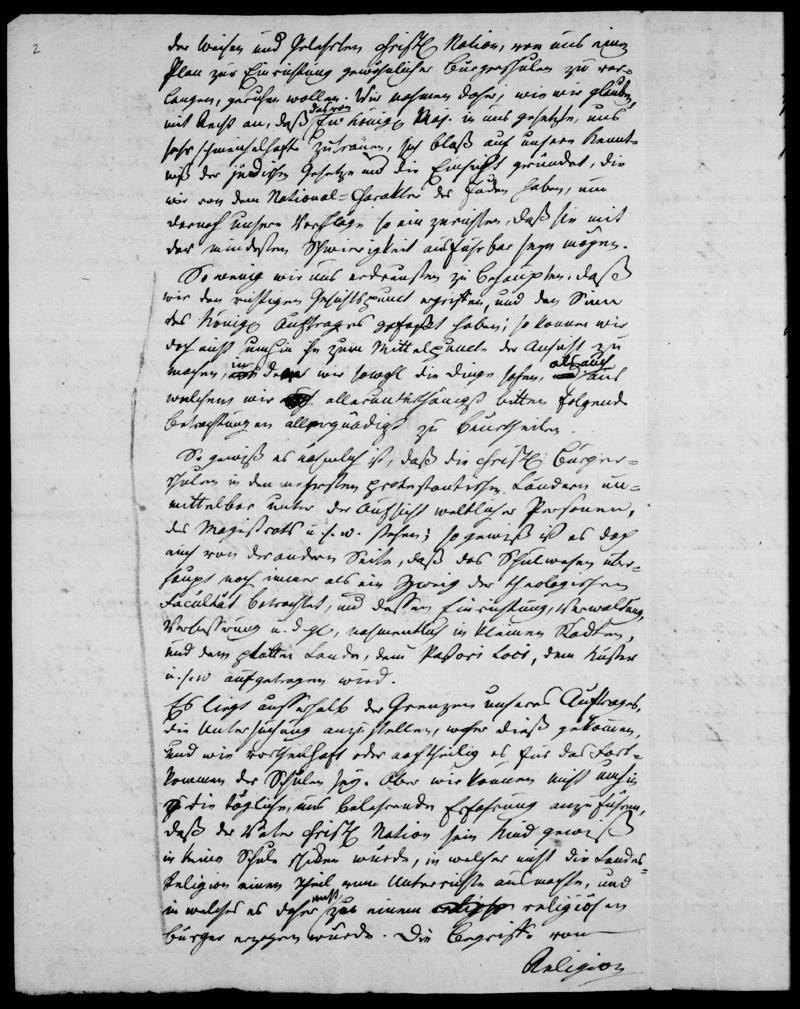 2
der Weisen und Gelehrten Christl. Nation, von uns einen
Plan zur Einrichtung gewöhnlicher Bürgerschulen zu ver=
langen, geruhen wollen. Wir nehmen daher, wie wir glauben,
mit Recht an, daß das von Ew Königl. Maj. in uns gesetzte, uns
sehr schmeichelhafte Zutrauen, sich bloß auf unsere Kennt=
niß der jüdischen Gesetze und die Einsicht gründet, die
wir von dem National=Charakter der Juden haben, um
darnach unsere Vorschläge so einzurichten, daß sie mit
der mindesten Schwierigkeit ausführbar seyn mögen.
So wenig wir uns erdreusten zu behaupten, daß
wir den richtigen Gesichtspunct ergriffen, und den Sinn
des Königl. Auftrages gefaßt haben; so können wir
doch nicht umhin ihn zum Mittelpuncte der Ansicht zu
machen, in dem wir sowohl die Dinge sehen, als auch aus
welchem wir allerunterthänigst bitten folgende
Betrachtungen allergnädigst zu beurtheilen.
So gewiß es nähmlich ist, daß die christl. Bürger=
schulen in den mehresten protestantischen Ländern un=
mittelbar unter der Aufsicht weltlicher Personen,
des Magistrats u. s. w. stehen; so gewiß ist es doch
auch von der andern Seite, daß das Schulwesen über=
haupt noch immer als ein Zweig der theologischen
Facultät betrachtet, und dessen Einrichtung, Verwaltung,
Verbesserung u. d. gl., nahmentlich in kleinen Städten,
und dem platten Lande, dem Pastori Loci, dem Küster
u. s. w aufgetragen wird.
Es liegt ausserhalb der Grenzen unseres Auftrages,
die Untersuchung anzustellen, woher dieß gekommen,
und wie vortheilhaft oder nachtheilig es für das Fort=
kommen der Schulen sey. Aber wir können nicht umhin
die tägliche, uns belehrende Erfahrung anzuführen,
daß der Vater christl. Nation sein Kind gewiß
in keine Schule schicken würde, in welcher nicht die Landes=
Religion einen Theil vom Unterrichte ausmachte, und
in welcher es daher nicht zu einem religiösen
Bürger erzogen würde. Die Begriffe von
Religion